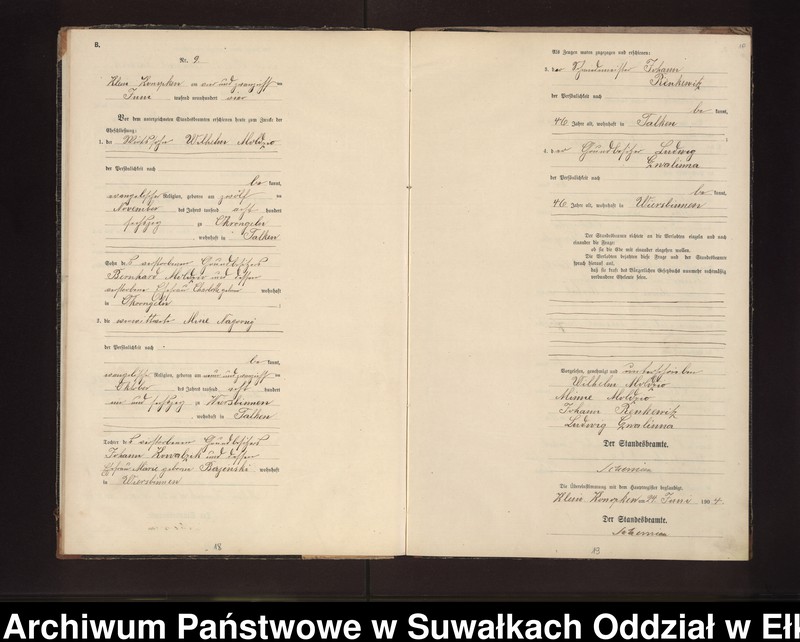 8.
Nr. 9
Klein Konopken am vier und zwanzigsten
Juni tausend neunhundert vier
Vor dem unterzeichneten Standesbeamten erschienen heute zum Zwecke der
Eheschließung:
1. der Wilhelm Moldzio
der Persönlichkeit nach
be kannt,
evangelischer Religion, geboren am zwölften
November des Jahres tausend acht hundert
sechszig zu
, wohnhaft in Talken
Sohn des verstorbenen Grundbesitzers
Bernhard Moldzio und dessen
verstorbene Ehefrau Charlotte geborene wohnhaft
in
2. die verwittwete Mine Nagorny
der Persönlichkeit nach
be kannt,
evangelischer Religion, geboren am vier und zwanzigsten
Oktober des Jahres tausend acht hundert
und sechszig zu Wiersbinnen
wohnhaft in Talken
Tochter des verstorbenen Grundbesitzers
Johann Kowalzik und dessen
Ehefrau Marie geborene wohnhaft
in Wiersbinnen
18
10
Als Zeugen waren zugezogen und erschienen:
3. der Johann
Rinkewitz
der Persönlichkeit nach
be kannt,
46 Jahre alt, wohnhaft in Talken
4. der Grundbesitzer Ludwig
Gwalinna
der Persönlichkeit nach
be kannt,
46 Jahre alt, wohnhaft in Wiersbinnen
Der Standesbeamte richtete an die Verlobten einzeln und nach
einander die Frage:
ob sie die Ehe mit einander eingehen wollen.
Die Verlobten bejahten diese Frage und der Standesbeamte
sprach hierauf aus,
daß sie kraft des Bürgerlichen Gesetzbuchs nunmehr rechtmäßig
verbundene Eheleute seien.
Vorgelesen, genehmigt und unterschrieben
Wilhelm Moldzio
Minne Moldzio
Johann Renkewitz
Ludwig Gwalinna
Der Standesbeamte.
Die Übereinstimmung mit dem Hauptregister beglaubigt.
Klein Konopken, am 24. Juni 1904.
Der Standesbeamte.
19
Archiwum Państwowe w Suwałkach Oddział w Eł